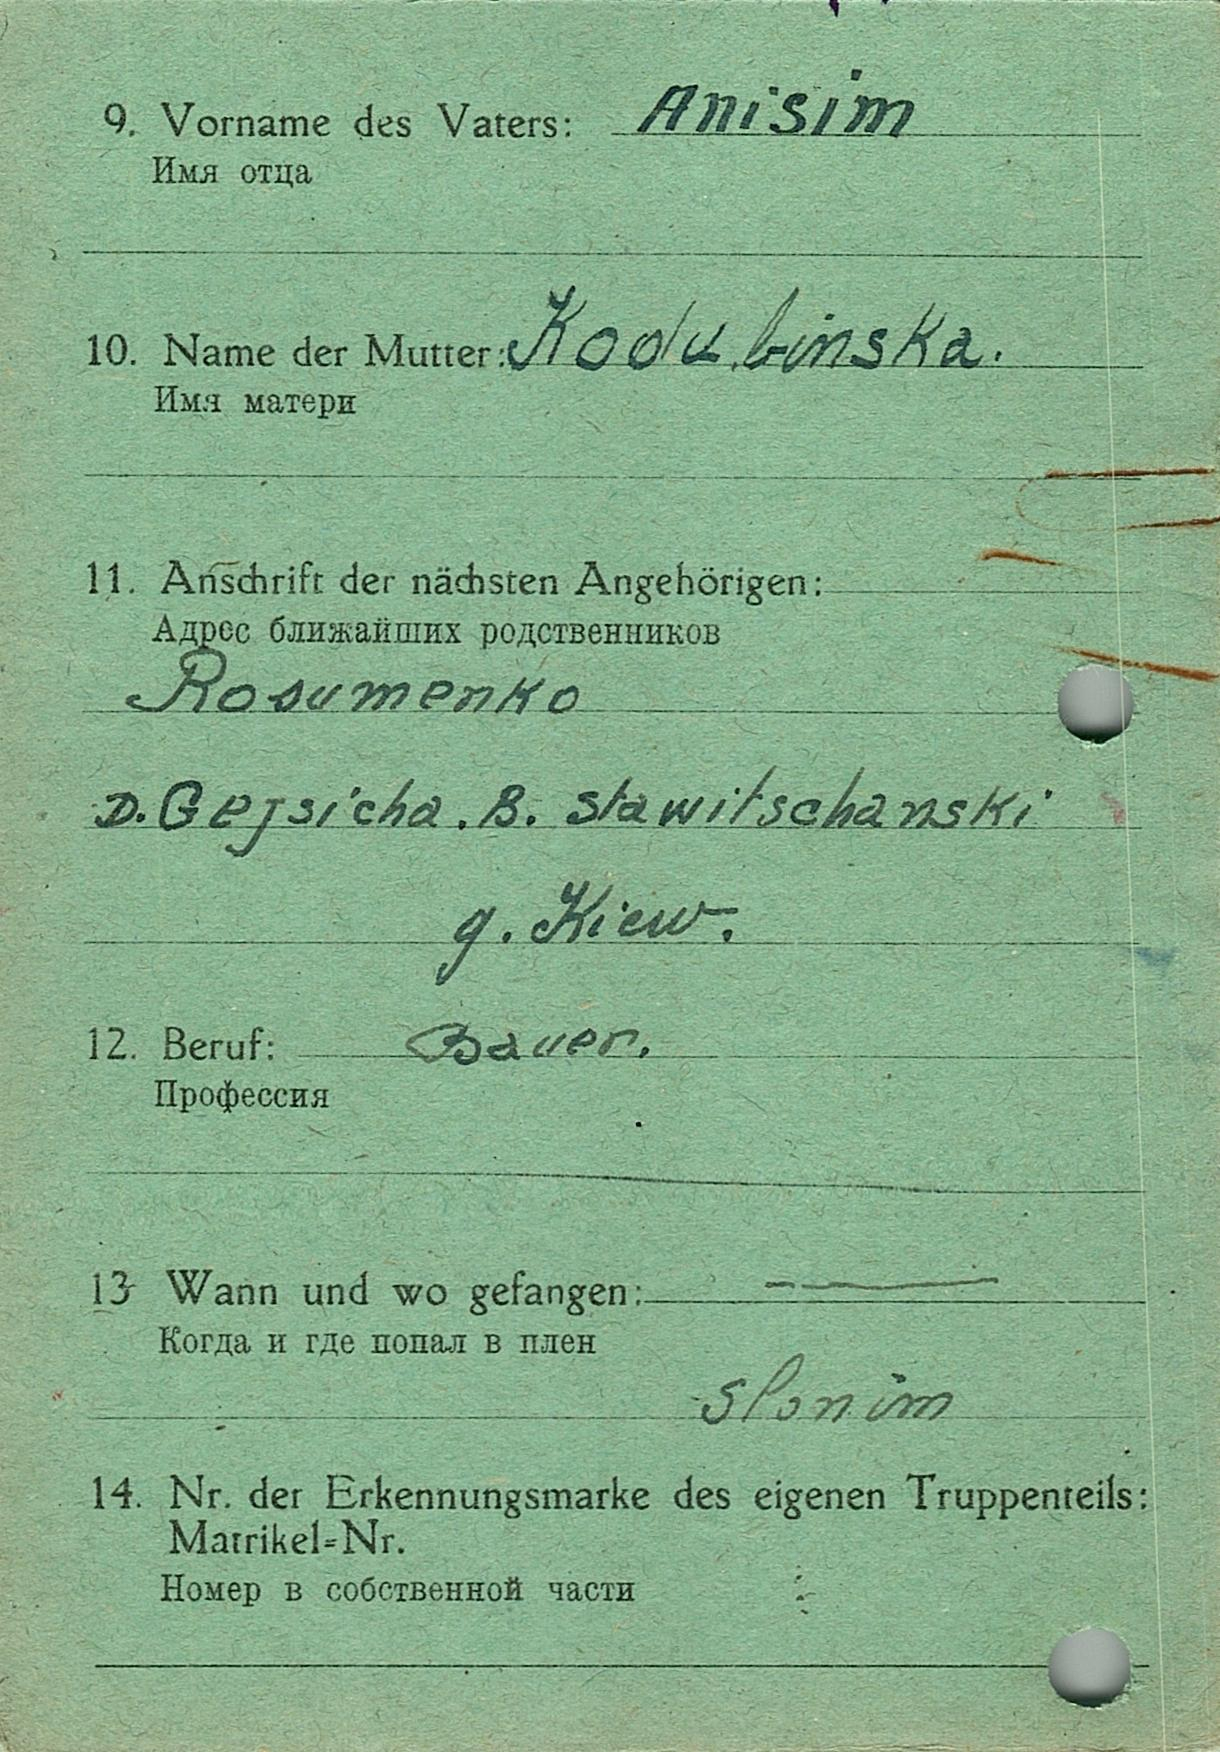 9. Vorname des Vaters: Anisim
Имя отца
10. Name der Mutter: Kodubinska.
Имя матери
11. Anschrift der nächsten Angehörigen:
Адрес ближайших родственников
Rosumenko
D. Gejsicha. B. Stawitschanski
g. Kiew.
12. Beruf: Bauer.
Профессия
13 Wann und wo gefangen: — —
Когда и где попал в плен
Slonim
14. Nr. der Erkennungsmarke des eigenen Truppenteils:
Matrikel=Nr.
Номер в собственной части